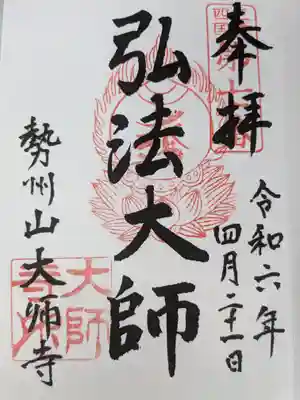 奉拝
令和六年
四月二十一日
弘法大師
勢州山大師寺
四国
大師